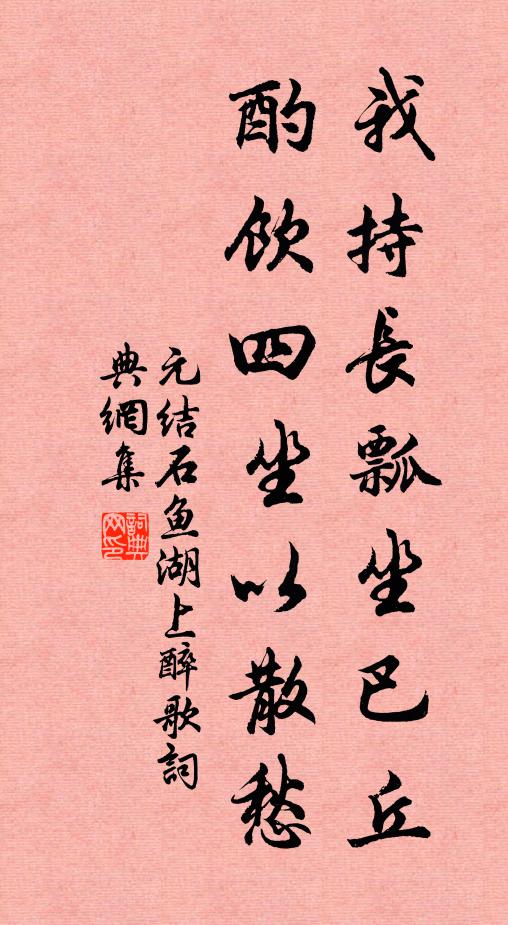 我持長瓢坐巴丘
酌饮四坐以散愁
元结石鱼湖上醉歌詞
典網集
詞典网印